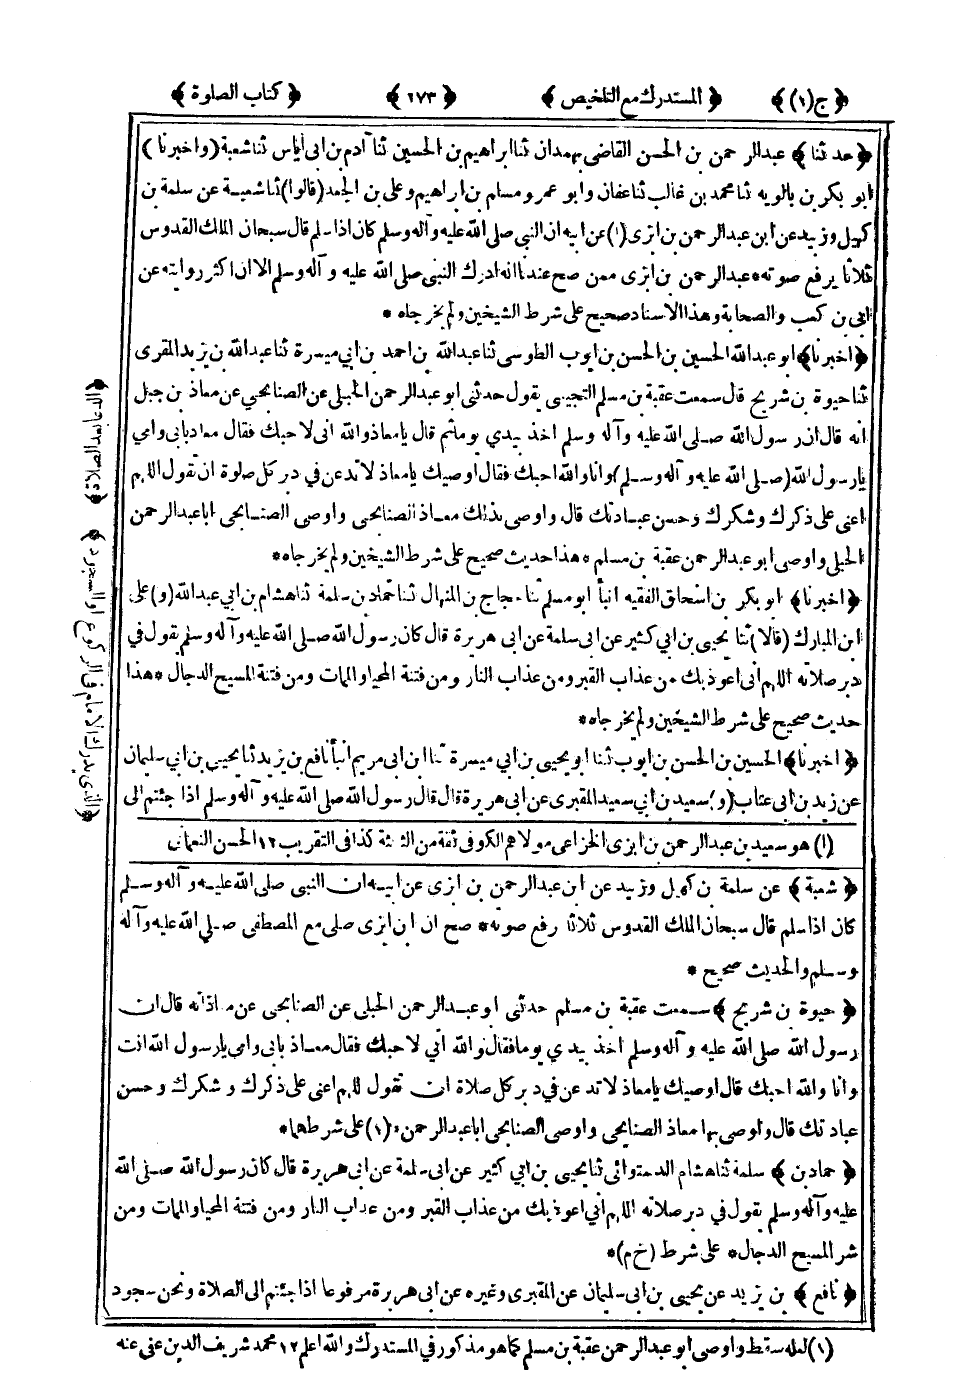 ﴿ج(١)﴾ ﴿المستدرك مع التلخيص﴾ ﴿٢٧٣﴾ ﴿كتاب الصلوة﴾
﴿حدثنا﴾ عبدالرحمن بن الحسن القاضي بهمدان ثنا ابراهيم بن الحسين ثنا آدم بن ابى اياس ثنا شعبة (واخبرنا)
ابو بكر بن بالويه ثنا محمد بن غالب ثنا عفان وابو عمر ومسلم بن ابراهيم وعلى بن الجعد (قالوا) ثنا شعبة عن سلمة بن
كهيل وزبيد عن ابن عبدالرحمن بن ابزى (١) عن ابيه ان النبى صلى الله عليه وآله وسلم كان اذا سلم قال سبحان الملك القدوس
ثلاثا يرفع صوته* عبدالرحمن بن ابزى ممن صح عندنا انه ادرك النبى صلى الله عليه وآله وسلم الا ان اكثر روايته عن
ابى بن كعب والصحابة وهذا الاسناد صحيح على شرط الشيخين ولم يخرجاه *
﴿اخبرنا﴾ ابو عبدالله الحسين بن الحسن بن ايوب الطوسى ثنا عبدالله بن احمد بن ابي ميسرة ثنا عبدالله بن يزيد المقرى
ثنا حيوة بن شريح قال سمعت عقبة بن مسلم التجيبى يقول حدثنى ابو عبدالرحمن الحبلى عن الصنابحي عن معاذ بن جبل
انه قال ان رسول الله صلى الله عليه وآله وسلم اخذ بيدي يوما ثم قال يا معاذ والله انى لاحبك فقال معاذ بابى وامي
يا رسول الله (صلى الله عليه وآله وسلم) وانا والله احبك فقال اوصيك يا معاذ لا تدعن في دبر كل صلوة ان تقول اللهم
اعنى على ذكرك وشكرك وحسن عبادتك قال واوصى بذلك معاذ الصنابحى واوصى الصنابحى ابا عبدالرحمن
الحبلى واوصى ابو عبدالرحمن عقبة بن مسلم * هذا حديث صحيح على شرط الشيخين ولم يخرجاه*
﴿اخبرنا﴾ ابو بكر بن اسحاق الفقيه انبأ ابو مسلم ثنا حجاج بن المنهال ثنا حماد بن سلمة ثنا هشام بن ابي عبدالله (و) على
ابن المبارك (قالا) ثنا يحيى بن ابي كثير عن ابى سلمة عن ابى هريرة قال كان رسول الله صلى الله عليه وآله وسلم يقول في
دبر صلاته اللهم انى اعوذ بك من عذاب القبر ومن عذاب النار ومن فتنة المحيا والممات ومن فتنة المسيح الدجال *هذا
حديث صحيح على شرط الشيخين ولم يخرجاه*
﴿اخبرنا﴾ الحسين بن الحسن بن ايوب ثنا ابو يحيى بن ابي ميسرة ثنا ابن ابى مريم انبأ نافع بن يزيد ثنا يحيى بن ابي سليمان
عن زيد بن ابى عتاب (و) سعيد بن ابي سعيد المقبرى عن ابى هريرة قال قال رسول الله صلى الله عليه وآله وسلم اذا جئتم الى
﴿دعاء بعد الصلاة﴾
﴿الذى يدرك الامام فى الركوع او السجود﴾
(١) هو سعيد بن عبدالرحمن بن ابزى الخزاعى مولاهم الكوفى ثقة من الثالثة كذا فى التقريب ١٢ الحسن النعمانى
﴿شعبة﴾ عن سلمة بن كهيل وزبيد عن ابن عبدالرحمن بن ابزى عن ابيه ان النبى صلى الله عليه وآله وسلم
كان اذا سلم قال سبحان الملك القدوس ثلاثا رفع صوته* صح ان ابن ابزى صلى مع المصطفى صلى الله عليه وآله
وسلم والحديث صحيح *
﴿حيوة بن شريح﴾ سمعت عقبة بن مسلم حدثنى ابو عبدالرحمن الحبلى عن الصنابحى عن معاذ انه قال ان
رسول الله صلى الله عليه وآله وسلم اخذ بيدي يوما فقال والله اني لاحبك فقال معاذ بابى وامي يا رسول الله انت
وانا والله احبك قال اوصيك يا معاذ لا تدعن في دبر كل صلاة ان تقول اللهم اعنى على ذكرك وشكرك وحسن
عبادتك قال واوصى بها معاذ الصنابحى واوصى الصنابحى ابا عبدالرحمن* (١) على شرطهما*
﴿حماد بن﴾ سلمة ثنا هشام الدستوائى ثنا يحيى بن ابي كثير عن ابى سلمة عن ابى هريرة قال كان رسول الله صلى الله
عليه وآله وسلم يقول في دبر صلاته اللهم اني اعوذ بك من عذاب القبر ومن عذاب النار ومن فتنة المحيا والممات ومن
شر المسيح الدجال* على شرط (خ م)*
﴿نافع﴾ بن يزيد عن يحيى بن ابى سليمان عن المقبرى وغيره عن ابى هريرة مرفوعا اذا جئتم الى الصلاة ونحن سجود
(١) لعله سقط واوصى ابو عبدالرحمن عقبة بن مسلم كما هو مذكور في المستدرك والله اعلم ١٢ محمد شريف الدين عفى عنه